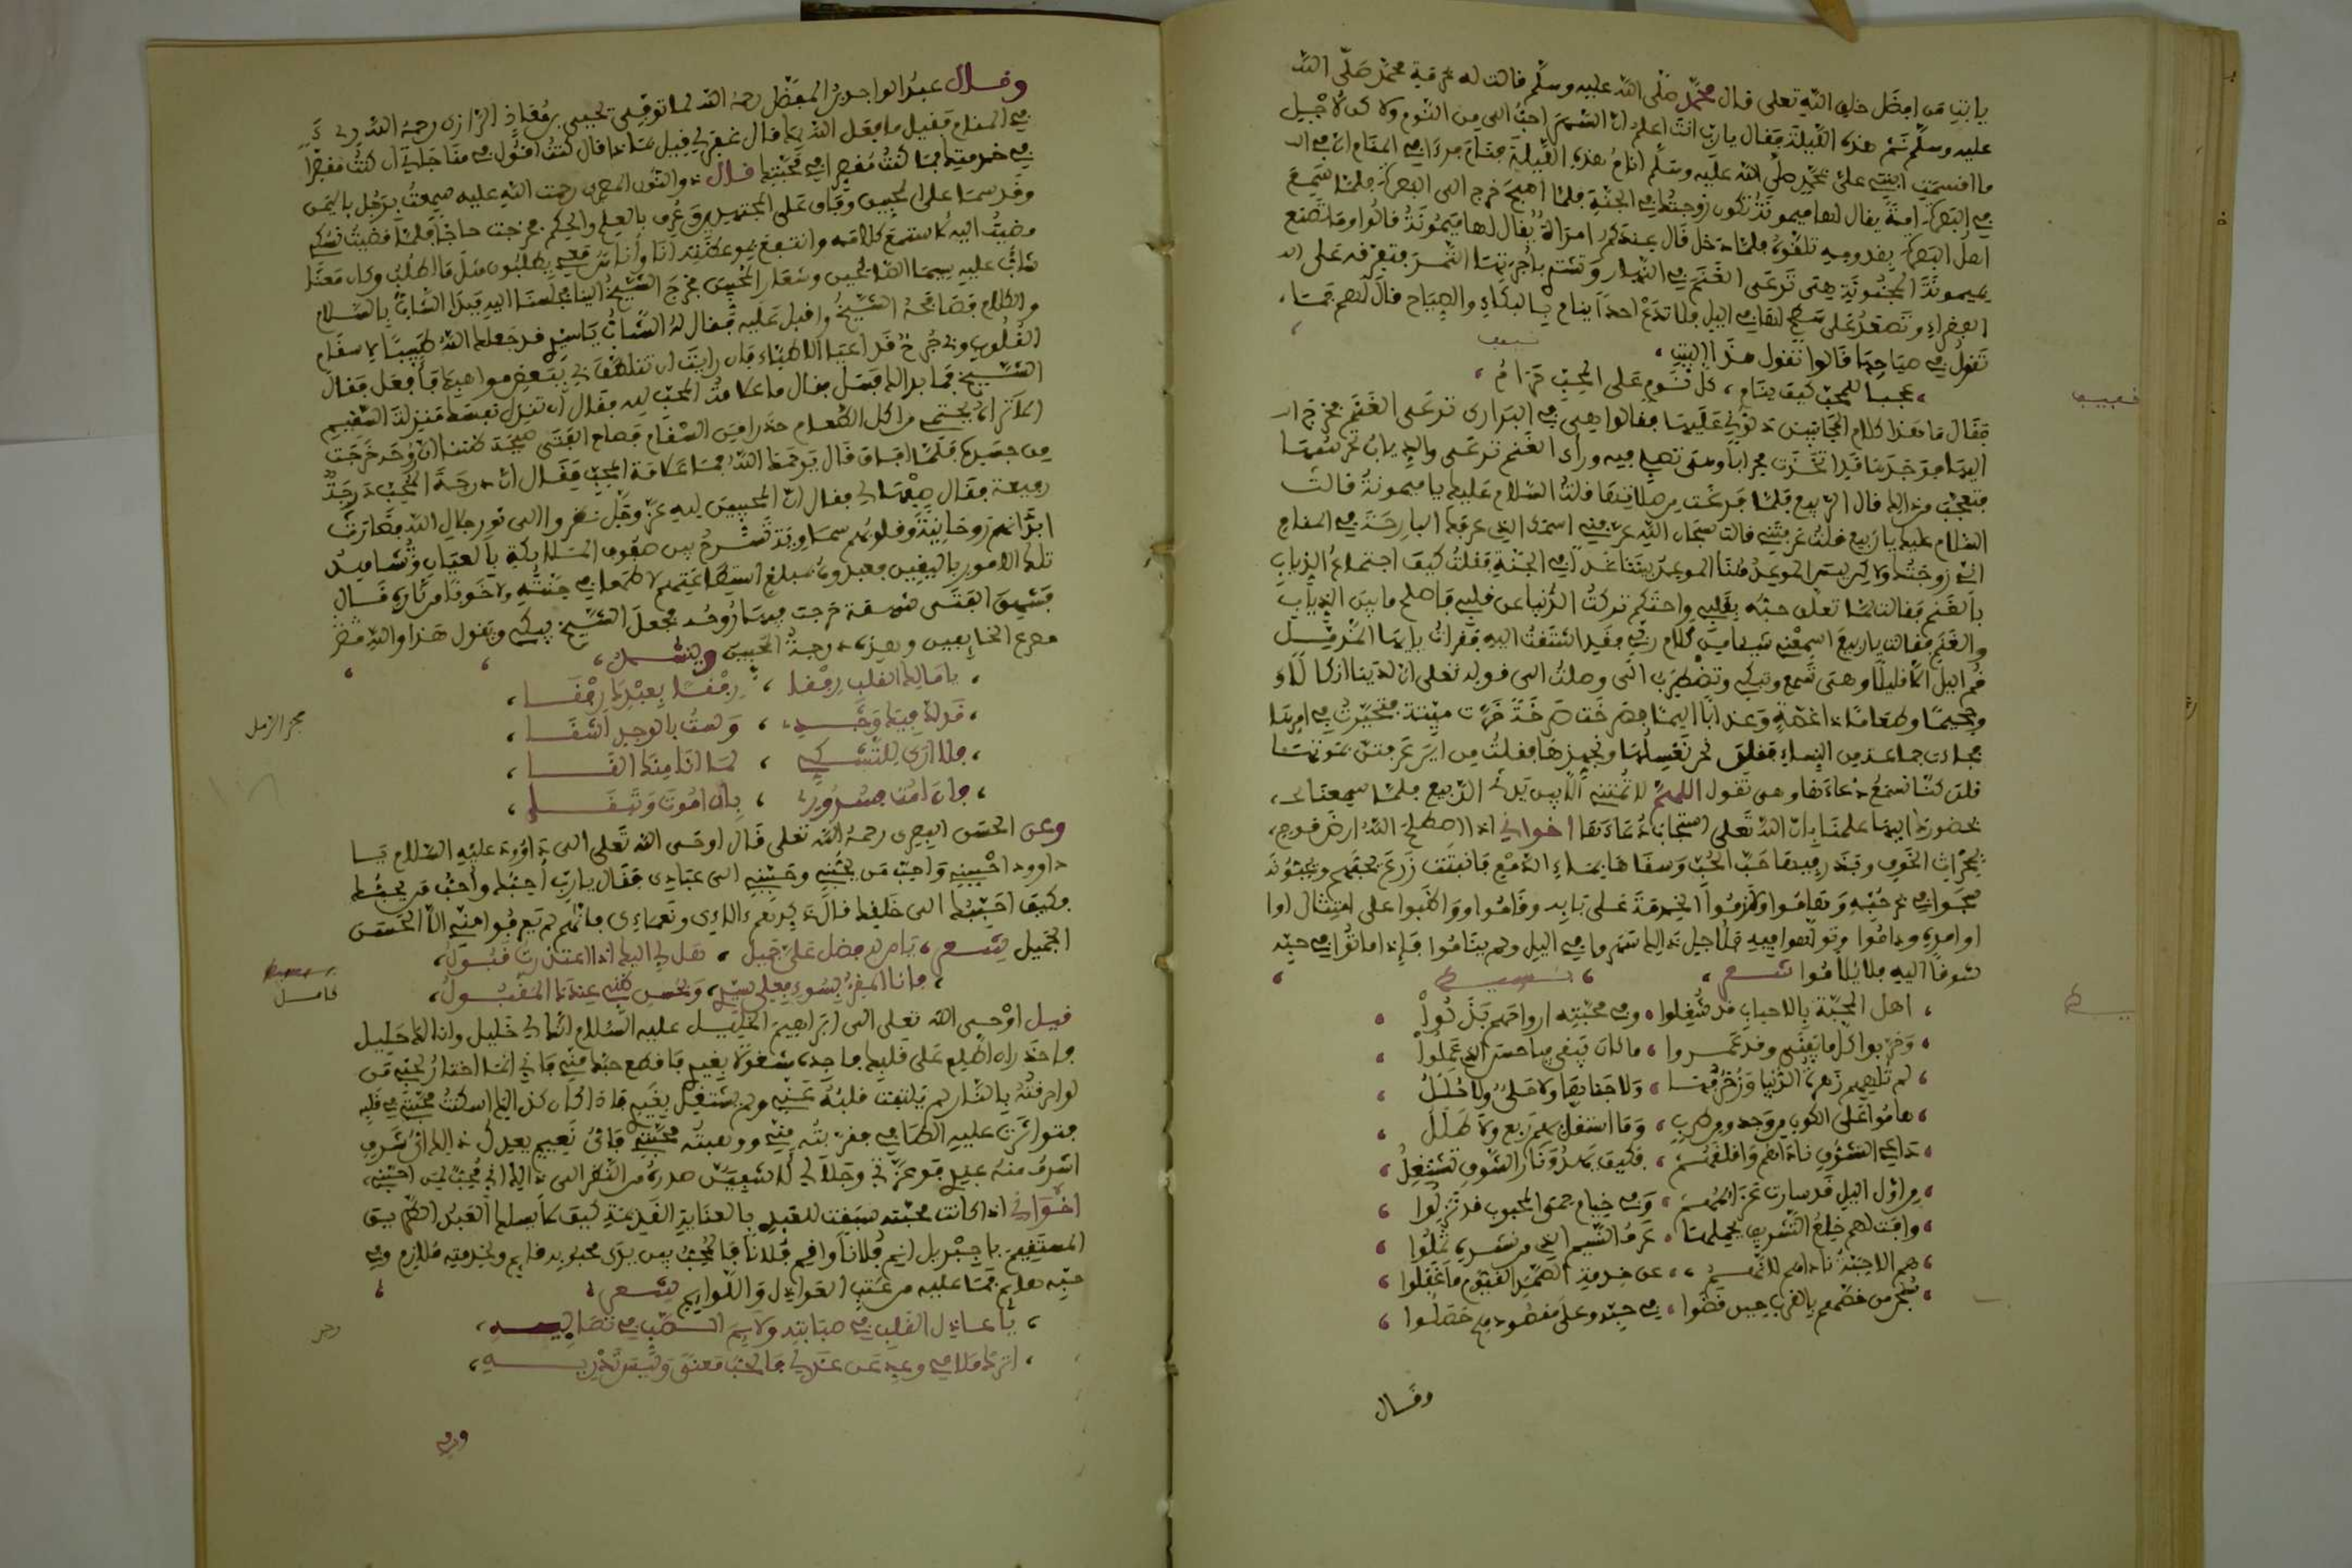 يا ابت من افضل خلق الله تعلى فال محمد صلى الله عليه وسلم فالت له بحرمة محمد صلى الله
عليه وسلم نم هذه الليلة فقال يا رب انت اعلم ان السهر احب الي من النوم ولاكن لاجل
ما افسمت ابنتي على بمحمد صلى الله عليه وسلم انام هذه الليلة فنام فرءا في المنام ان في
في البصرة امة يفال لها ميمونة تكون زوجته في الجنة فلما اصبح خرج الى البصرة فلما سمع
اهل البصرة بفدومه تلفوه فلما دخل فال عندكم امراة يفال لها ميمونة فالوا وما تصنع
بميمونة المجنونة هي ترعى الغنم في النهار وتشتري باجرتها التمر فتفرفه على
الففراء وتصعد على سطح لها في اليل فلا تدع احدا ينام بالبكاء والصياح فال لهم فما
تفول في صياحها فالوا تفول هذا البيت
عجبا للمحب كيف ينام كل نوم على المحب حرام
ففال ما هذا كلام المجانين دلوني عليها ففالوا هي في البراري ترعى الغنم فخرج
اليها فوجدها فد اتخذت محرابا وهي تصلي فيه وراى الغنم ترعى والذياب تحرسها
فتعجب من ذالك فال الربيع فلما فرغت من صلاتها فلت السلام عليك يا ميمونة فالت
السلام عليك يا ربيع فلت عرفتني فالت سبحان الله عرفني اسمك الذي عرفك البارحة في المنام
اني زوجتك ولاكن ليس الموعد هنا الموعد بيننا غدا في الجنة ففلت كيف اجتماع الذياب
بالغنم ففالت لما تعلق حبه بفلبي واحتكم تركت الدنيا عن فلبي فاصلح ما بين الذياب
والغنم ففالت يا ربيع اسمعني شيئا من كلام ربي ففد اشتفت اليه ففرات يا ايها المزمل
فم اليل الا فليلا وهي تسمع وتبكي وتضطرب الى ان وصلت الى فوله تعلى ان لدينا انكالا
وجحيما وطعاما ذا غصة وعذابا اليما فصرخت صرخة خرت ميتة فتحيرت في امرها
فجاءت جماعة من النساء ففلن نحن نغسلها ونجهزها ففلت من اين عرفتن بموتها
فلن كنا نسمع دعاءها وهي تفول اللهم لا تمتني الا بين يدي الربيع فلما سمعنا
بحضورك اليها علمنا بان الله تعلى استجاب دعاءها اخواني اذا اصلح الله ارض فلوب
بمحراث الخوف وبذر فيها حب الحب وسفاها بماء الدمع فانبتت زرع يحبهم ويحبونه
في حبه وهاموا ولزموا الخدمة على بابه وفاموا وواظبوا على امتثال
اوامره وداموا وتولهوا فيه فلاجل ذالك سهروا في اليل ولم يناموا فاذا ماتوا في حبه
شوفا اليه فلا يلاموا شعر بسيط
اهل المحبة بالاحباب فد شغلوا وفي محبته ارواحهم بذلوا
وخربوا كل ما يفنى وفد عمروا ما كان يبفى فيا حسن الذي عملوا
لم تلههم زهرة الدنيا وزخرفها ولا جناها ولا حلي ولا حلل
هاموا على الكون من وجد ومن طرب وما استفل بهم ربع ولا طلل
داعي التشوق ناداهم واقلفهم فكيف يهدؤ ونار الشوق تشتعل
من اول اليل فد سارت عزائمهم وفي خيام حمى المحبوب فد نزلوا
وافت لهم خلع التشريف يحملها عرف النسيم الذي من نشره ثملوا
هم الاحبة ناداهم لانهم عن خدمة الصمد القيوم ما غفلوا
وفال
وفال عبد الواحد بن المفضل رحمه الله لما توفي يحيى بن معاذ الرازي رحمه الله رءي
في المنام ففيل ما فعل الله بك فال غفر لي فيل بماذا فال كنت افول في مناجاتي ان كنت مفصرا
في خدمتك فما كنت مفصرا في محبتك فال ذو النون المصري رحمت الله عليه سمعت برجل باليمن
وفد سما على المحبين وفاق على المجتهدين وعرف بالعلم والحكم فخرجت حاجا فلما فضيت نسكي
مضيت اليه لاستمع كلامه وانتفع بموعظته انا واناس معي يطلبون مثل ما اطلب وكان معنا
شاب عليه سيما الصالحين وشعار المحبين فخرج الشيخ الينا فجلسنا اليه فبدا الشاب بالسلام
والكلام فصافحه الشيخ وافبل عليه ففال له الشاب يا سيدي فد جعلك الله طبيبا لاسفام
الفلوب وبي جرح فد اعيا الاطباء فان رايت ان تتلطف بي ببعض مراهمك فافعل ففال
الشيخ فما بدا لك فسل ففال ما علامة المحب لله ففال ان تنزل نفسك منزلة السفيم
الا تراه يحتمي من اكل الطعام حذرا من السفام فصاح الفتى صيحة ظننا ان روحه خرجت
من جسده فلما افاق فال يرحمك الله فما علامة المحب ففال ان درجة المحب درجة
رفيعة ففال صفها لي ففال ان المحبين لله عز وجل نظروا الى نور جلال الله فصارت
ابدانهم روحانية وفلوبهم سماوية تسرح بين صفوف الملائكة بالعيان وتشاهد
تلك الامور باليفين فعبدوه بمبلغ استطاعتهم لا طمعا في جنته ولا خوفا من ناره فال
فشهق الفتى شهفة خرجت فيها روحه فجعل الشيخ يبكي ويفول هذا والله مصرع
مصرع الخائفين وهذه درجة المحبين وينشد
يا مالك الفلب رفقا رفقا بعبدك رفقا
فد لذ فيك وجدي ولست بالوجد اشفا
فلا ارى للتشكي لما انا منك القا
فان امت فسروري بان اموت وتبفى
مجز الرمل
وعن الحسن البصري رحمه الله تعلى فال اوحى الله تعلى الى داوود عليه السلام يا
داوود احببني واحب من يحبني وحببني الى عبادي ففال يا رب احبك واحب من يحبك
فكيف احببك الى خلفك فال ذكرهم ءالاءي ونعماءي فانهم لم يعرفوا مني الا الحسن
الجميل شعر يا من له فضل علي جميل هل لي اليك اذا اعتذرت فبول
فانا المفر بسوء فعلي سيدي وبحسن ظني عندك المفبول
كامل
فيل اوحى الله تعلى الى ابراهيم الخليل عليه السلام انك لي خليل وانا لك خليل
فاحذر ان اطلع على فلبك فاجده مشغولا بغيري فافطع حبك مني فاني انما اختار لحبي من
لو احرفته بالنار لم يلتفت فلبه عني ولم يشتغل بغيري فاذا كان كذالك اسكنت محبتي في فلبه
فتواترت عليه الطافي ففربته مني ووهبته محبتي فاي نعيم يعدل ذالك اي شرف
اشرف منه عندي فوعزتي وجلالي لاشفين صدره من النظر الي ذالك اني محب لمن احبني
اخواني اذا كانت محبته سبفت للعبد بالعناية الفديمة كيف لا يسلك العبد الطريق
المستفيم يا جبريل انم فلانا وافم فلانا فالمحب بين يدي محبوبه فايم وبخدمته ملازم وفي
حبه هايم فما عليه من عتب العواذل واللوايم شعر
يا عاذل الفلب في صبابته ولايم الصب في
اترك ملامي وعد عن عذلي فالحب معنى وليس تدريه
رجز
وفي